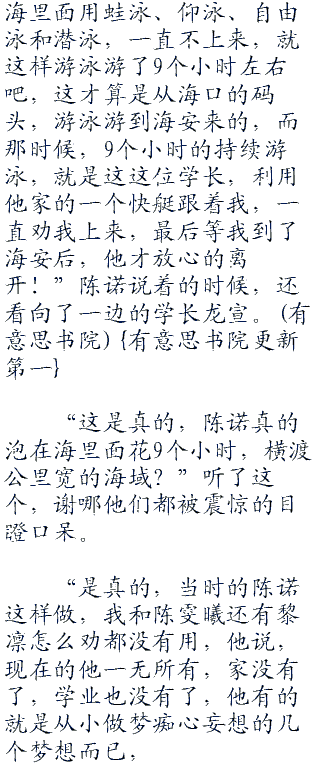 海里面用蛙泳、仰泳、自由
泳和潜泳，一直不上来，就
这样游泳游了9个小时左右
吧，这才算是从海口的码
头，游泳游到海安来的，而
那时候，9个小时的持续游
泳，就是这这位学长，利用
他家的一个快艇跟着我，一
直劝我上来，最后等我到了
海安后，他才放心的离
开！”陈诺说着的时候，还
看向了一边的学长龙宣。(有
意思书院) {有意思书院更新
第一}
“这是真的，陈诺真的
泡在海里面花9个小时，横渡
公里宽的海域？”听了这
个，谢哪他们都被震惊的目
瞪口呆。
“是真的，当时的陈诺
这样做，我和陈雯曦还有黎
凛怎么劝都没有用，他说，
现在的他一无所有，家没有
了，学业也没有了，他有的
就是从小做梦痴心妄想的几
个梦想而已，